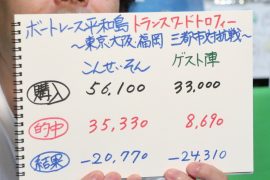 ボートレース平和島 トランスワードトロフィー
～東京.大阪.福岡 三都市対抗戦～
こんせいそん ゲスト陣
購入 56,100 33,000
的中 35,330 8,690
結果 -20,770 -24,310